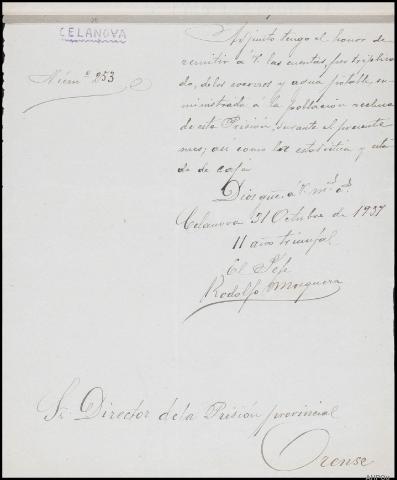 CELANOVA
Núm.º 253
Adjunto tengo el honor de
remitir a V. las cuentas por triplica
do, de los socorros y agua potable, su-
ministrada a la población reclusa
de esta Prisión, durante el presente
mes; así como la estadística y esta
do de caja
Dios gue. a V. m.s a.s
Celanova 31 Octubre de 1937
II año triunfal
El Jefe
Rodolfo Mosquera
Sr. Director de la Prisión provincial
Orense